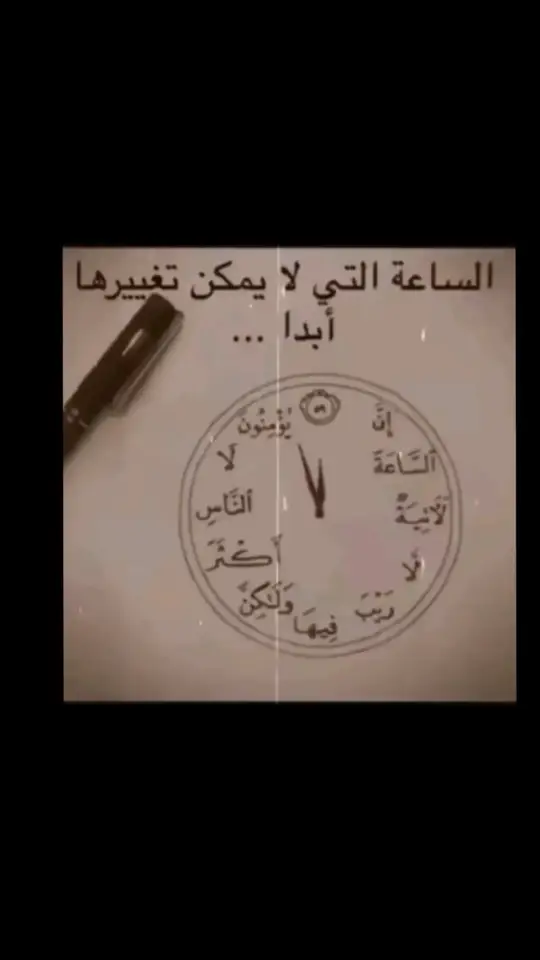 الساعة التي لا يمكن تغييرها
أبدا ...
٥٩
إِنَّ
ٱلسَّاعَةَ
لَآتِيَةٌ
لَّا
رَيْبَ
فِيهَا
وَلَٰكِنَّ
أَكْثَرَ
ٱلنَّاسِ
لَا
يُؤْمِنُونَ